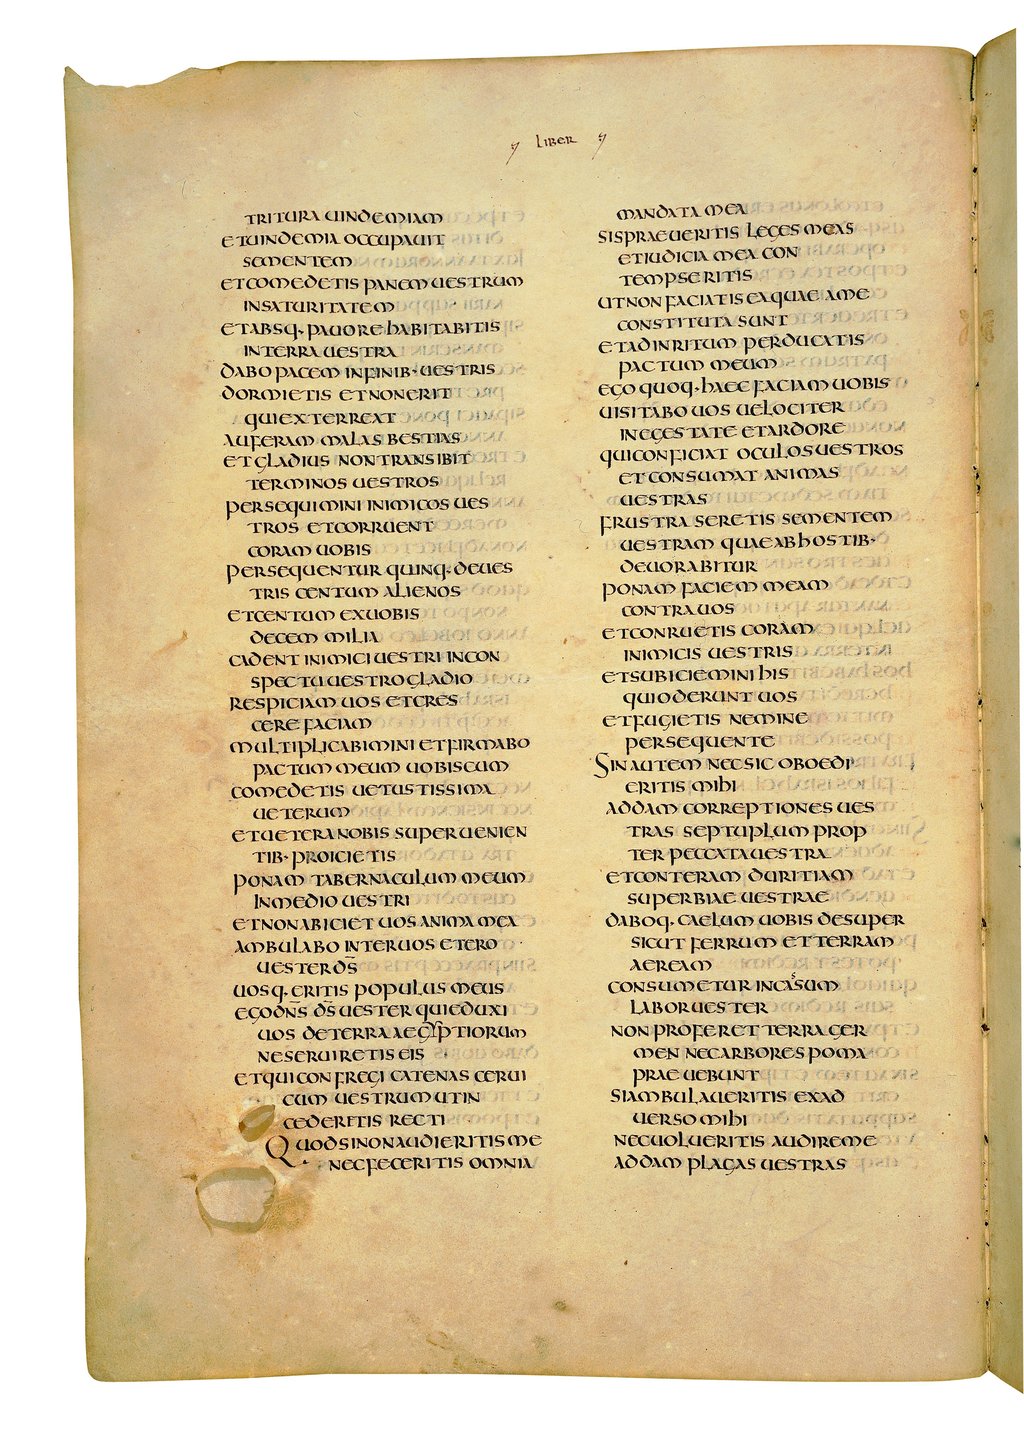 LIBER
TRITURA UINDEMIAM
ETUINDEMIA OCCUPAUIT
SEMENTEM
ETCOMEDETIS PANEM UESTRUM
INSATURITATEM
ETABSQ· PAUORE HABITABITIS
INTERRA UESTRA
DABO PACEM INFINIB· UESTRIS
DORMIETIS ETNONERIT
QUIEXTERREAT
AUFERAM MALAS BESTIAS
ETGLADIUS NONTRANSIBIT
TERMINOS UESTROS
PERSEQUIMINI INIMICOS UES
TROS ETCORRUENT
CORAM UOBIS
PERSEQUENTUR QUINQ· DEUES
TRIS CENTUM ALIENOS
ETCENTUM EXUOBIS
DECEM MILIA
CADENT INIMICI UESTRI INCON
SPECTU UESTRO GLADIO
RESPICIAM UOS ETCRES
CERE FACIAM
MULTIPLICABIMINI ETFIRMABO
PACTUM MEUM UOBISCUM
COMEDETIS UETUSTISSIMA
UETERUM
ETUETERA NOBIS SUPERUENIEN
TIB· PROICIETIS
PONAM TABERNACULUM MEUM
INMEDIO UESTRI
ETNONABICIET UOS ANIMA MEA
AMBULABO INTERUOS ETERO
UESTER D̅S̅
UOSQ· ERITIS POPULUS MEUS
EGO D̅N̅S̅ D̅S̅ UESTER QUIEDUXI
UOS DETERRA AEGYPTIORUM
NESERUIRETIS EIS
ETQUI CONFREGI CATENAS CERUI
CUM UESTRUM UTIN
CEDERETIS RECTI
QUODSINONAUDIERITIS ME
NECFECERITIS OMNIA
MANDATA MEA
SISPRAEUERITIS LEGES MEAS
ETIUDICIA MEA CON
TEMPSERITIS
UTNON FACIATIS EAQUAE AME
CONSTITUTA SUNT
ETADINRITUM PERDUCATIS
PACTUM MEUM
EGO QUOQ· HAEC FACIAM UOBIS
UISITABO UOS UELOCITER
INEGESTATE ETARDORE
QUICONFICIAT OCULOSUESTROS
ETCONSUMAT ANIMAS
UESTRAS
FRUSTRA SERETIS SEMENTEM
UESTRAM QUAEABHOSTIB·
DEUORABITUR
PONAM FACIEM MEAM
CONTRAUOS
ETCONRUETIS CORAM
INIMICIS UESTRIS
ETSUBICIEMINI HIS
QUIODERUNT UOS
ETFUGIETIS NEMINE
PERSEQUENTE
SINAUTEM NECSIC OBOEDI
ERITIS MIHI
ADDAM CORREPTIONES UES
TRAS SEPTUPLUM PROP
TER PECCATAUESTRA
ETCONTERAM DURITIAM
SUPERBIAE UESTRAE
DABOQ· CAELUM UOBIS DESUPER
SICUT FERRUM ETTERRAM
AEREAM
CONSUMETUR INCASSUM
LABORUESTER
NON PROFERET TERRA GER
MEN NECARBORES POMA
PRAEUEBUNT
SIAMBULAUERITIS EXAD
UERSO MIHI
NECUOLUERITIS AUDIREME
ADDAM PLAGAS UESTRAS